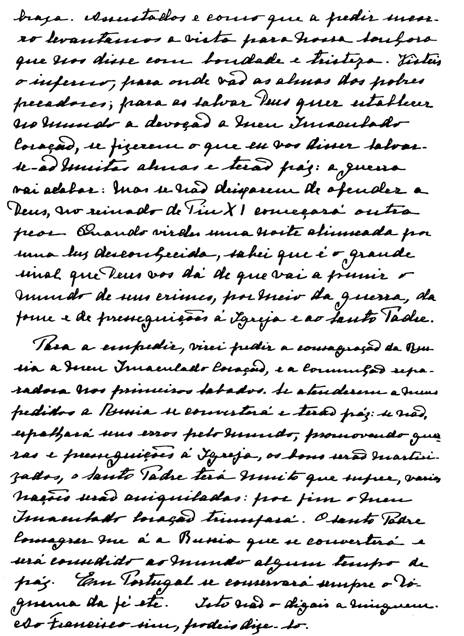 braça. Assustados e como que a pedir socor-
ro levantamos a vista para Nossa Senhora
que nos disse com bondade e tristeza. Visteis
o inferno, para onde vão as almas dos pobres
pecadores; para as salvar Deus quer establecer
no mundo a devoção a meu Imaculado
Coração, se fizerem o que eu vos disser salvar-
se-ão muitas almas e terão páz: a guerra
vai acabar: mas se não deixarem de ofender a
Deus, no reinado de Pio XI começará outra
peor. Quando virdes uma noite alumeada por
uma luz desconhecida, sabei que é o grande
sinal que Deus vos dá de que vai a punir o
mundo de seus crimes, por meio da guerra, da
fome e de presseguições á Igreja e ao Santo Padre.
Para a empedir, virei pedir a consagração da Rus-
sia a meu Imaculado Coração, e a Comunhão repa-
radora nos primeiros sabados. Se atenderem a meus
pedidos a Russia se converterá e terão páz: se não,
espalhará seus erros pelo mundo, promovendo gue-
ras e presseguições á Igreja, os bons serão martiri-
zados, o Santo Padre terá muito que sufrer, varias
nações serão aniquiladas: por fim o meu
Imaculado Coração triumfará. O Santo Padre
consagrar-me-á a Russia que se converterá e
será consedido ao mundo algum tempo de
páz. Em Portugal se conservará sempre o do-
guema da fé etc. Isto não o digais a ninguem.
Ao Francisco sim, podeis dize-lo.